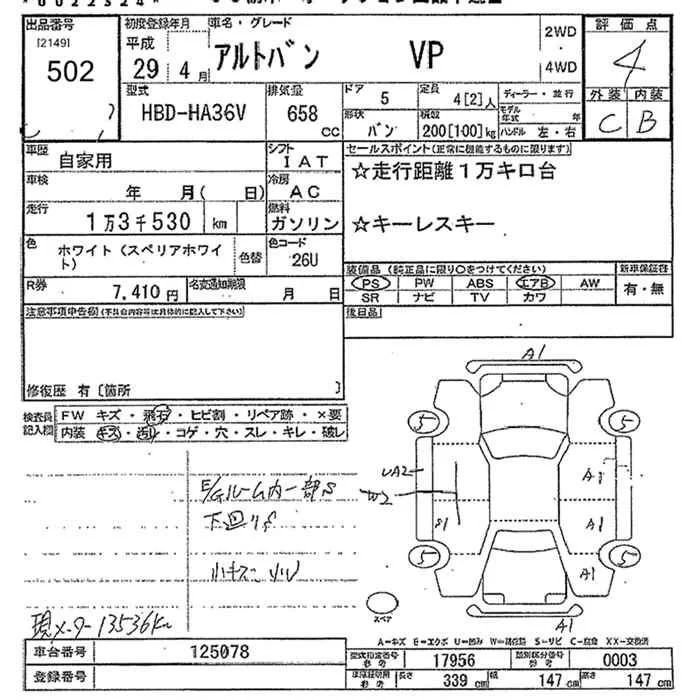 出品番号 [2149] 502
初度登録年月 平成 29年 4月
車名・グレード アルトバン VP
2WD
4WD
評価点 4
外装 内装
C B
型式 HBD-HA36V
排気量 658 CC
ドア 5
定員 4[2]人
ディーラー・並行
モデル年式 年
形状 バン
積載 200[100]kg
ハンドル 左・右
車歴 自家用
シフト IAT
車検 年 月( 日)
冷房 AC
走行 1万3千530 km
燃料 ガソリン
色 ホワイト(スペリアホワイト)
色替
色コード 26U
R券 7,410円
名変通知期限 月 日
セールスポイント(正常に機能するものに限ります)
☆走行距離1万キロ台
☆キーレスキー
装備品(純正品に限り○をつけてください)
新車保証書
PS PW ABS エアB AW
有・無
SR ナビ TV カワ
後日品
注意事項申告欄(不具合内容等は具体的に記入して下さい)
修復歴 有〔箇所 〕
検査員記入欄
FW キズ・飛石・ヒビ割・リペア跡・×要
内装 キズ・汚れ・コゲ・穴・スレ・キレ・破レ
E/gルーム内一部S
下回りS
小キズ小U
現メーター13536km
A1
5 5
UA2
W2
A1
S1
A1
5 5
A1
A1
スペア
A=キズ E=エクボ U=凹み W=補修跡 S=サビ C=腐食 XX=交換済
車台番号 125078
登録番号
型式指定番号 参考 17956
類別区分番号 参考 0003
長さ 339 cm 幅 147 cm 高さ 147 cm